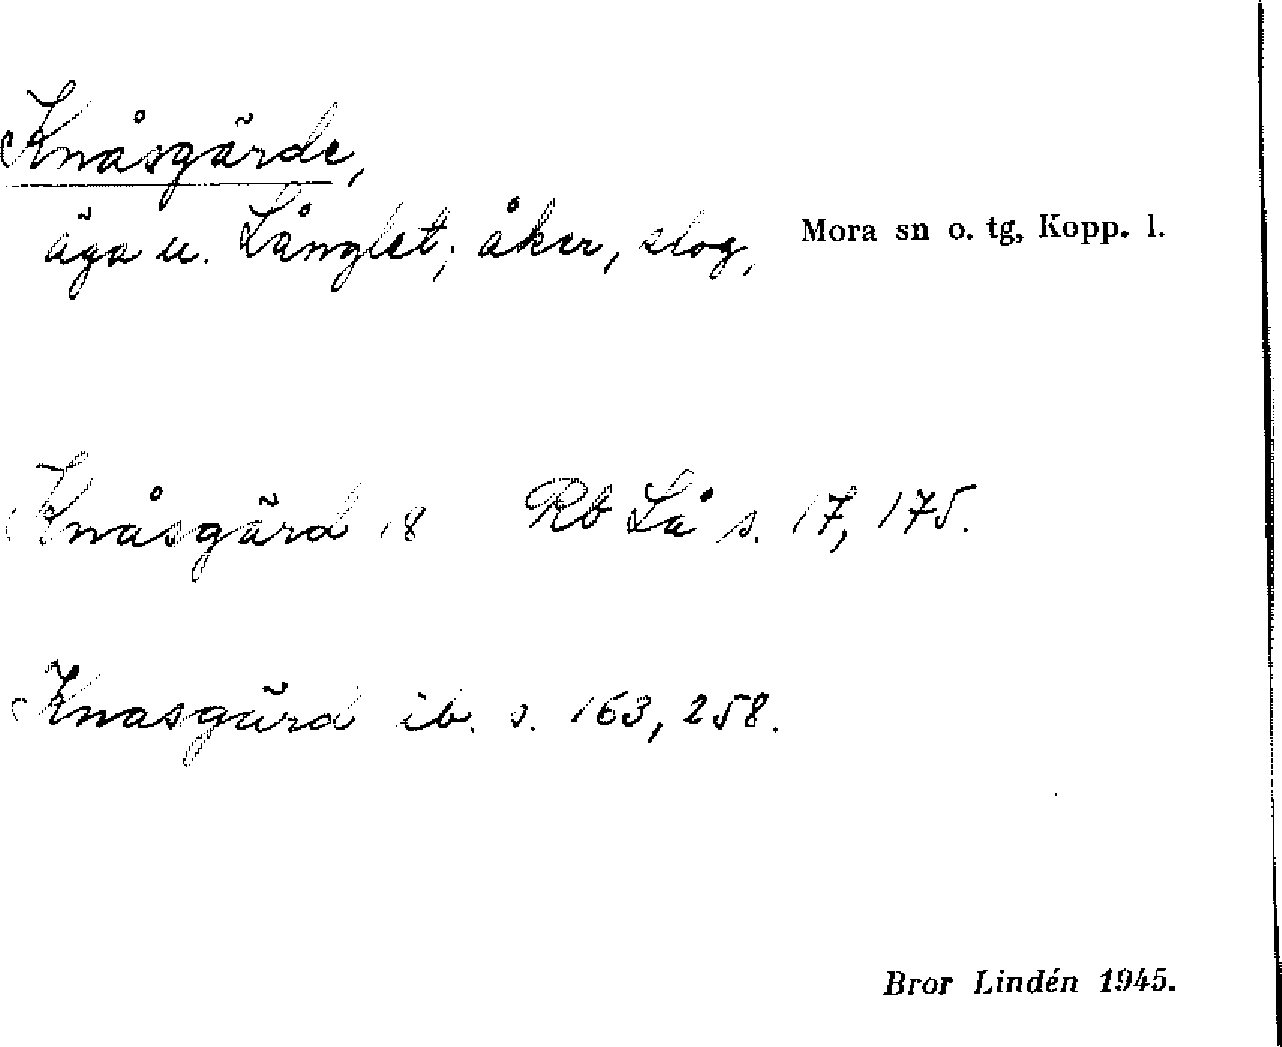 Knåsgärde,
äga u. Långlet; åker, slog, Mora sn o. tg, Kopp. l.
Knåsgärd 18 Rb Lå s. 17, 175.
Knasgärd ib. s. 163, 258.
Bror Lindén 1945.